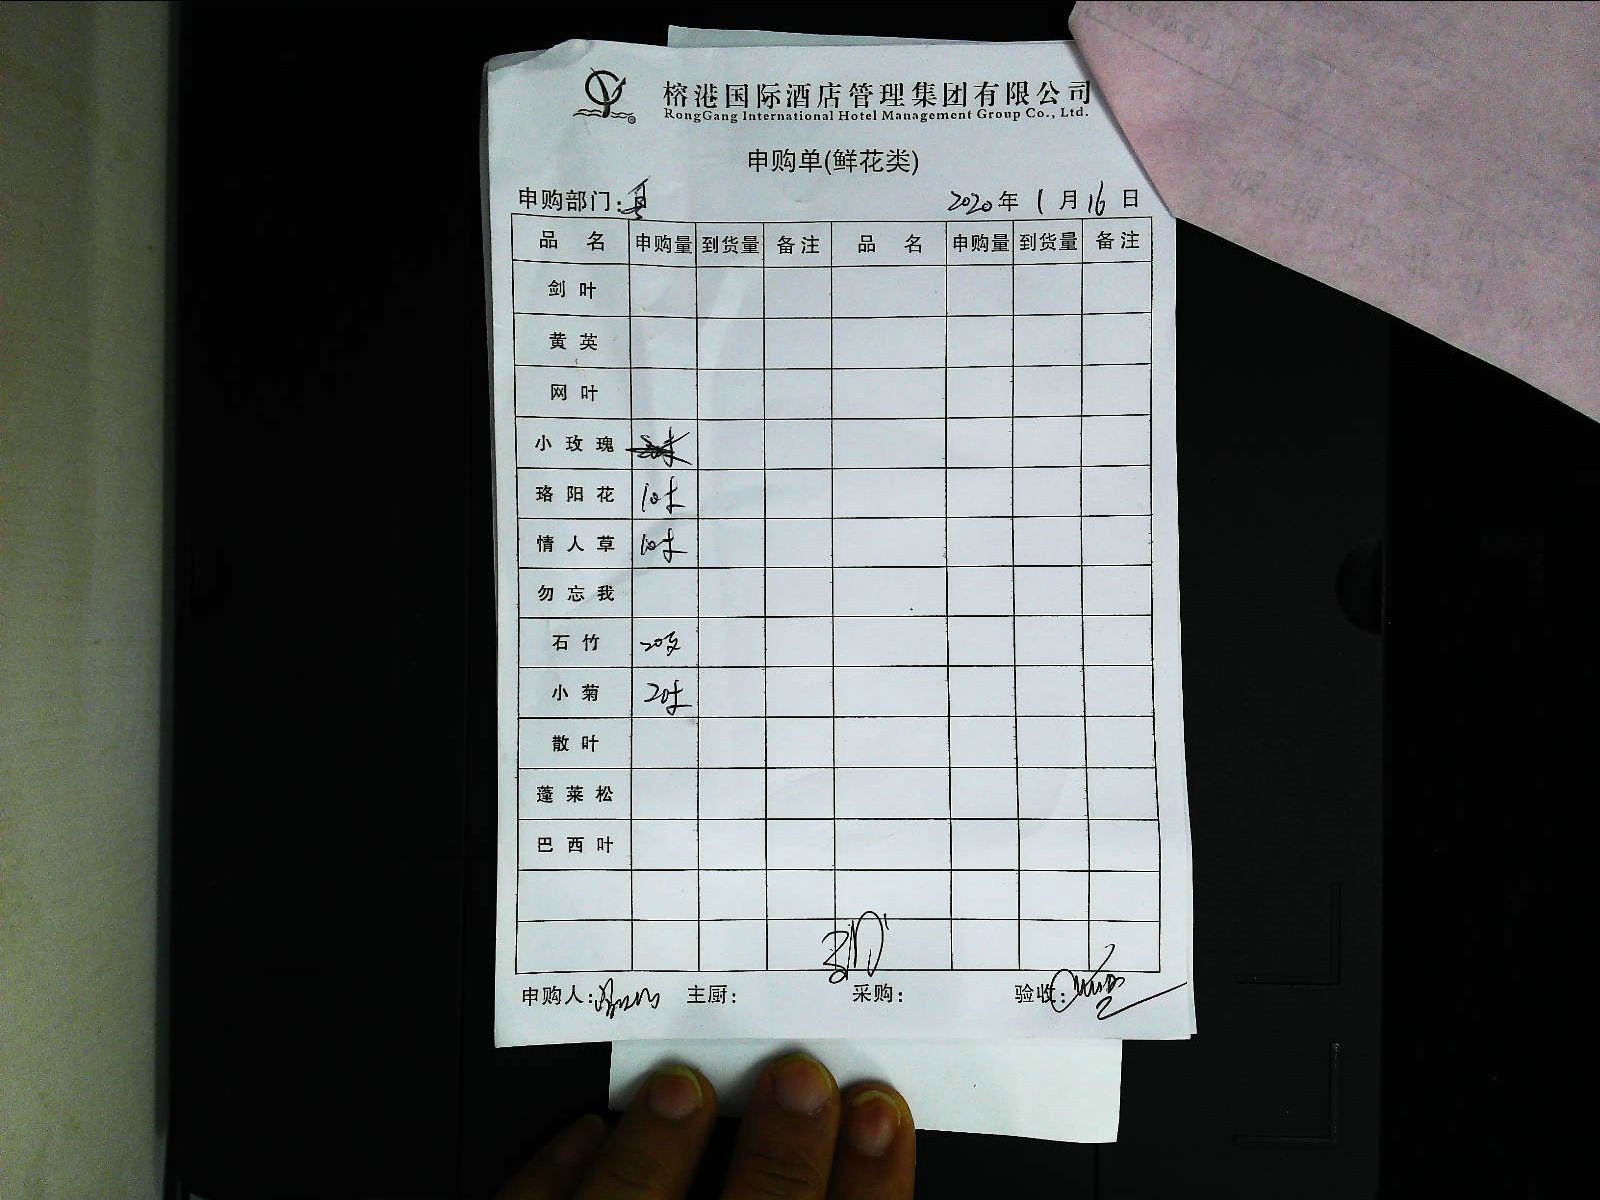 榕港国际酒店管理集团有限公司
RongGang International Hotel Management Group Co., Ltd.
申购单(鲜花类)
申购部门: 2020年1月16日
品 名 申购量 到货量 备注 品 名 申购量 到货量 备注
剑叶
黄英
网叶
小玫瑰
珞阳花 10扎
情人草 10扎
勿忘我
石竹 20支
小菊 20扎
散叶
蓬莱松
巴西叶
申购人: 主厨: 采购: 验收: